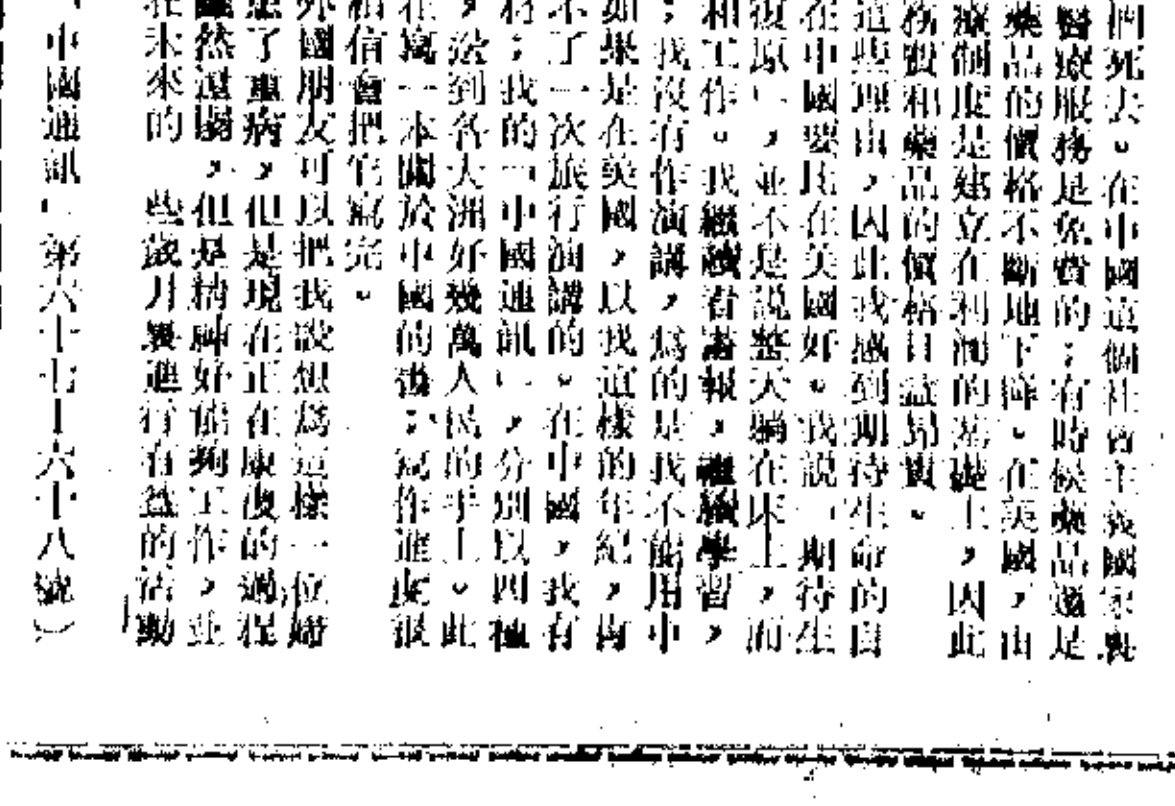 們死去。在中國這個社會主義國家裏
醫療服務是免費的；有時候藥品還是
藥品的價格不斷地下降。在美國，由
療制度是建立在利潤的基礎上，因此
務費和藥品的價格日益昂貴。
這些理由，因此我感到期待生命的自
在中國要比在美國好。我說「期待生
復原」，並不是說整天躺在床上，而
和工作。我繼續看書報，繼續學習，
；我沒有作演講，爲的是我不能用中
如果是在美國，以我這樣的年紀，肯
不了一次旅行演講的。在中國，我有
；我的「中國通訊」，分別以四種
，發到各大洲好幾萬人民的手上。此
在寫一本關於中國的書；寫作進度很
相信會把它寫完。
外國朋友可以把我設想爲這樣一位婦
患了重病，但是現在正在康復的過程
雖然還弱，但是精神好能夠工作，並
在未來的一些歲月裏進行有益的活動
「中國通訊」第六十七—六十八號）